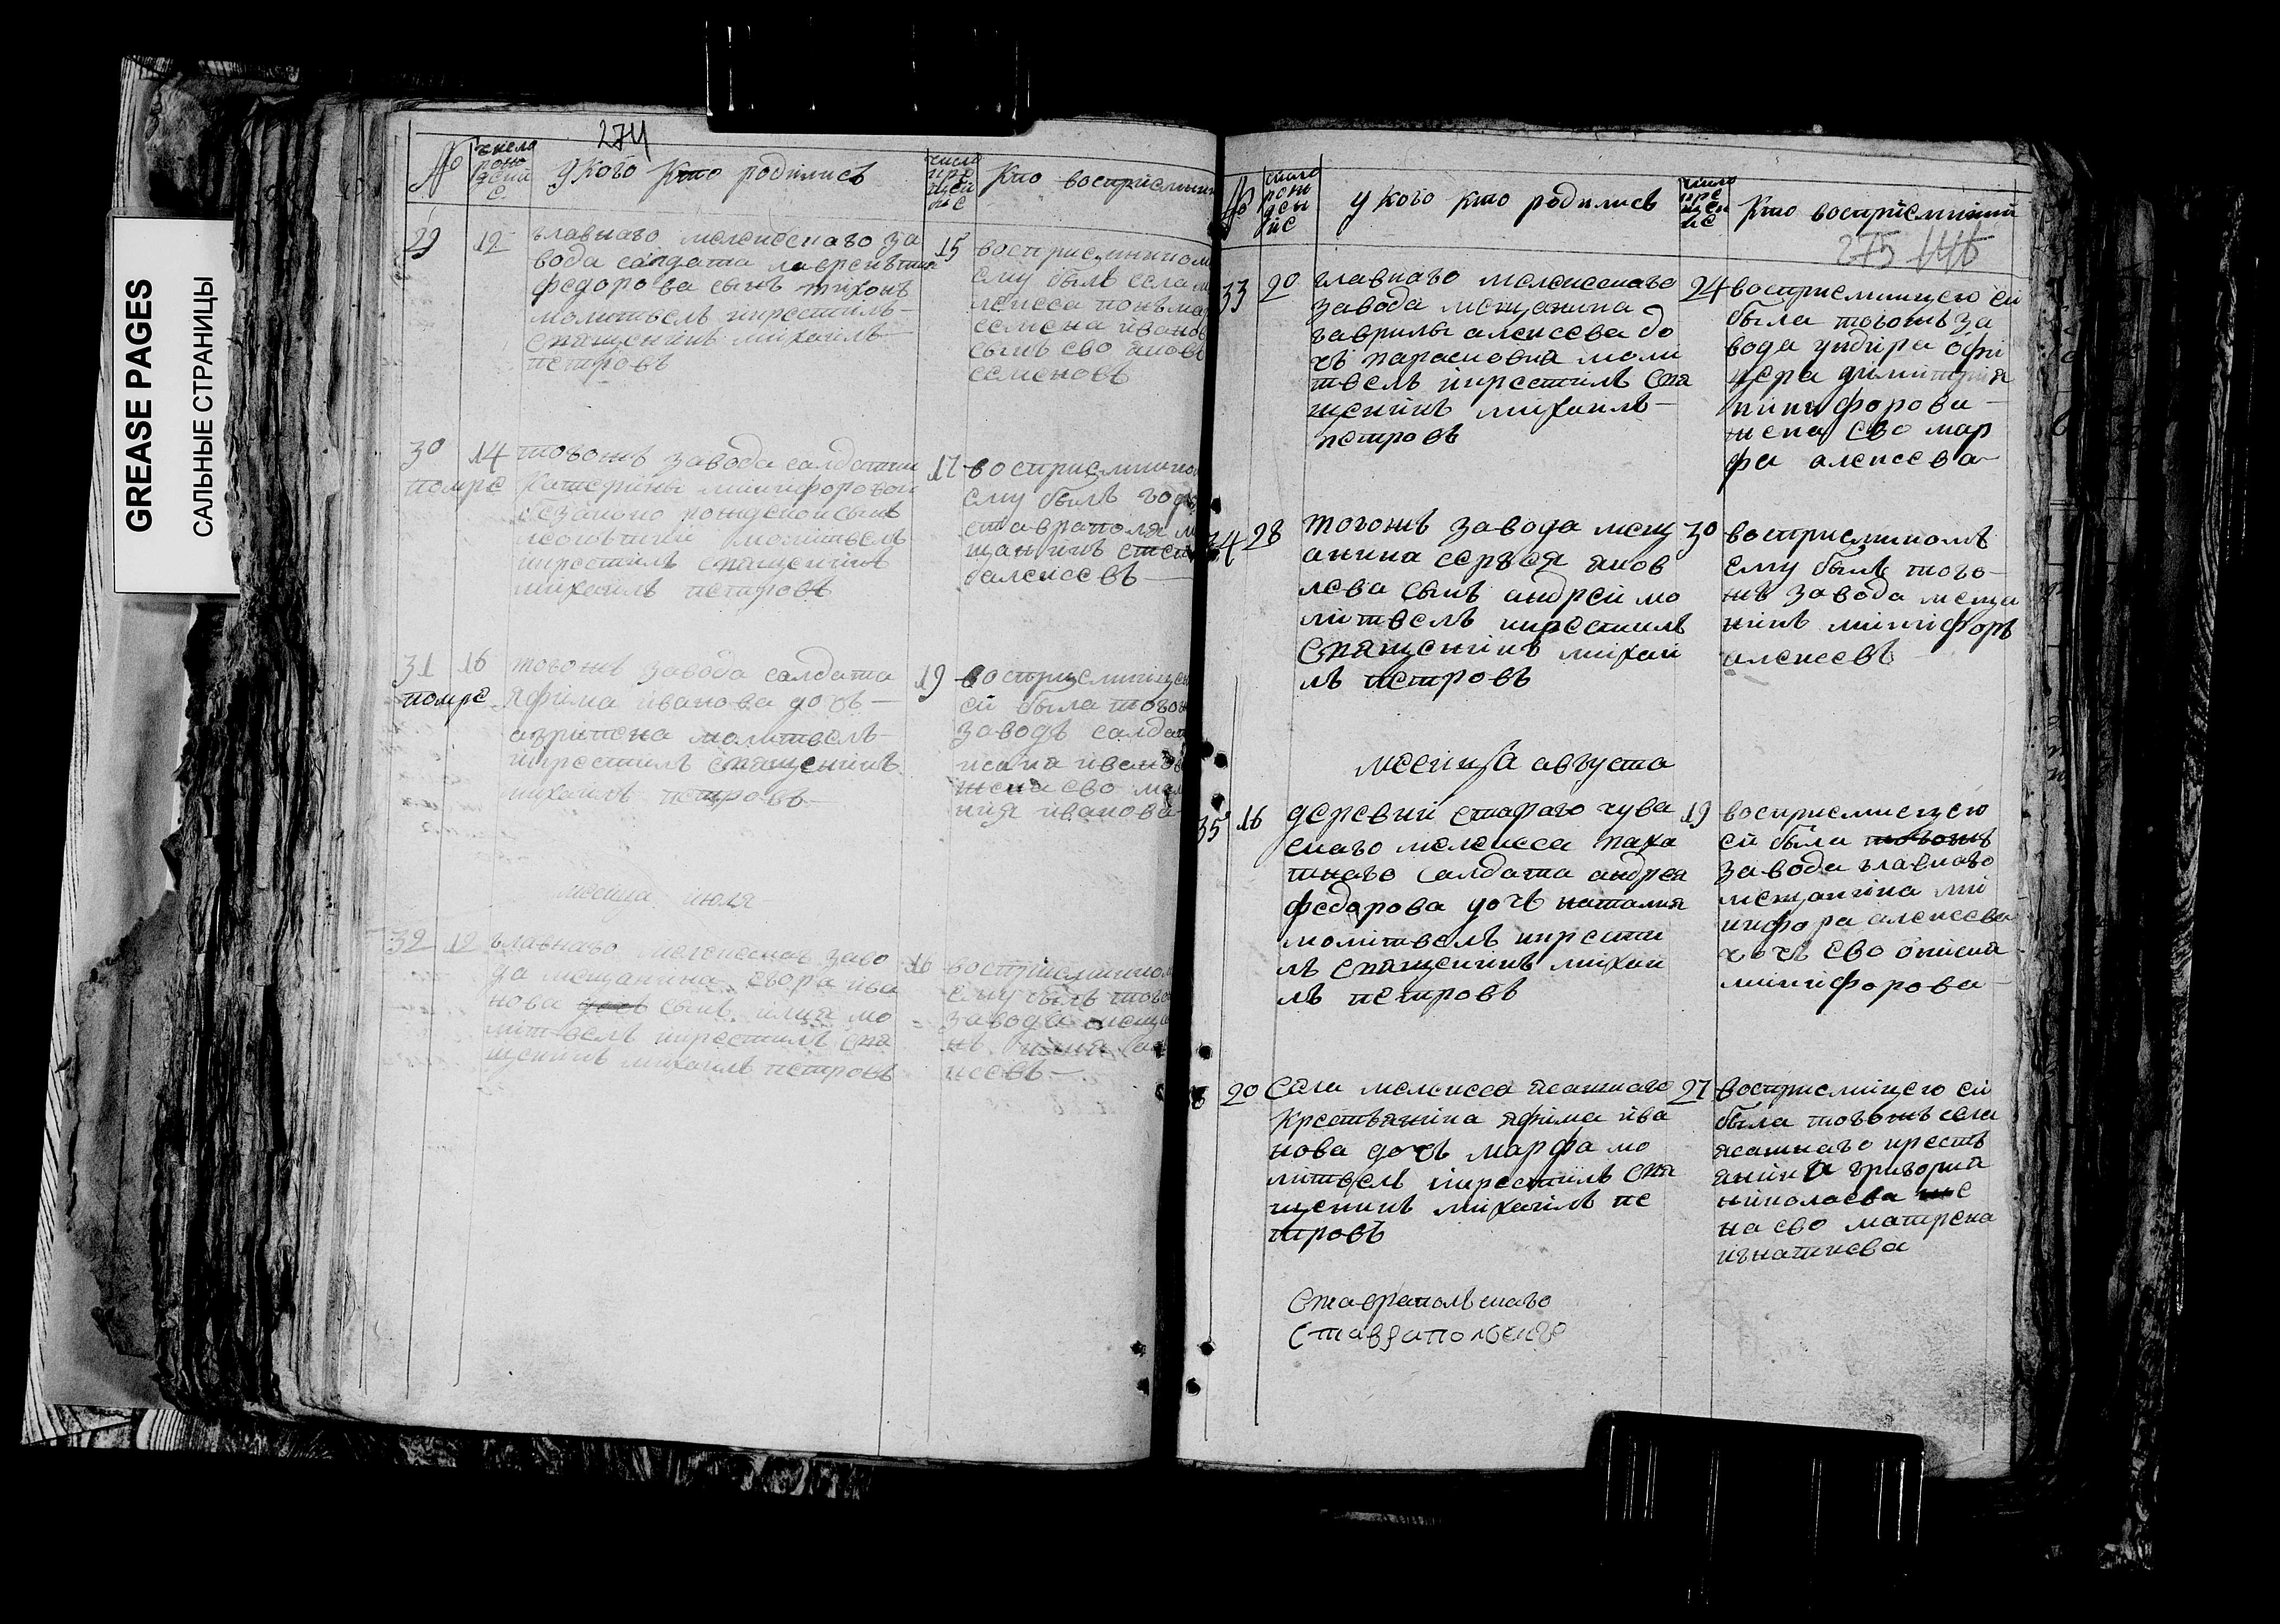 GREASE PAGES
САЛЬНЫЕ СТРАНИЦЫ
274
№
число рождения
у кого кто родились
число крещения
кто восприемники
29
12
главнаго мелекескаго за
вода салдата лаврентия
федорова сынъ тихонъ
молитвелъ икрестилъ
священникъ михаилъ
петровъ
15
восприемником
ему былъ села м
лекеса
семена иванов
сынъ ево яковъ
семеновъ
30
помре
14
тогожъ завода салдатки
катерины никифоровой
незаконо рожденой сынъ
леонътий молитвелъ
икрестилъ священникъ
михаилъ петровъ
17
восприемнико
ему былъ горо
ставраполя м
щанинъ степ
алексеевъ
31
помре
16
тогожъ завода салдата
яфима иванова дочь
агрипена молитвелъ
икрестилъ священникъ
михаилъ петровъ
19
восприемницею
ей была тогож
заводъ салдат
ивано
жена ево мал
ния иванова
месяца июля
32
12
главнаго мелекескаг заво
да мещанина егора ива
нова дочь сынъ илия мо
литвелъ икрестилъ свя
щеникъ михаилъ петровъ
16
восприемником
ему былъ тогож
завода меща
нъ але
ксеевъ
№
число рождения
у кого кто родились
число крещения
кто восприемники
275
33
20
главнаго мелекескаго
завода мещанина
гаврилы алексеева до
чь парасковия моли
твелъ икрестилъ свя
щенникъ михаилъ
петровъ
24
восприемницею ей
была тогожъ за
вода ундира офи
цера димитрия
никифорова
жена ево мар
фа алексеева
34
28
тогожъ завода мещ
анина сергея яков
лева сынъ андрей мо
литвелъ икрестилъ
священикъ михаи
лъ петровъ
30
восприемникомъ
ему былъ того
жъ завода меща
нинъ никифоръ
алексеевъ
месяца августа
35
16
деревни стараго чува
скаго мелекеса паха
тнаго салдата андрея
федорова дочь наталия
молитвелъ икрести
лъ священникъ михаи
лъ петровъ
19
восприемницею
ей была тогожъ
завода главнаго
мещанина ни
кифора алексеева
дочь ево
никифорова
20
села мелекеса ясашнаго
крестьянина яфима ива
нова дочь марфа мо
литвелъ икрестилъ свя
щеникъ михаилъ пе
тровъ
27
восприемницею ей
была тогожъ села
ясашнаго кресть
янина григорья
николаева же
на ево матрена
игнатиева
Ставрапольскаго
Ставрапольскаго